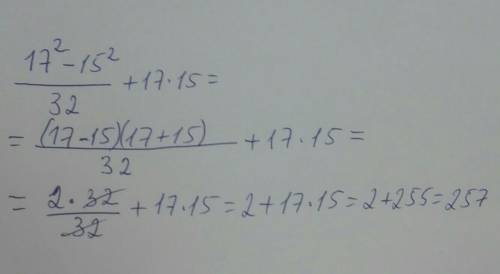 (17² − 15²)/32 + 17·15 =
= ((17−15)(17+15))/32 + 17·15 =
= (2·32)/32 + 17·15 = 2 + 17·15 = 2 + 255 = 257